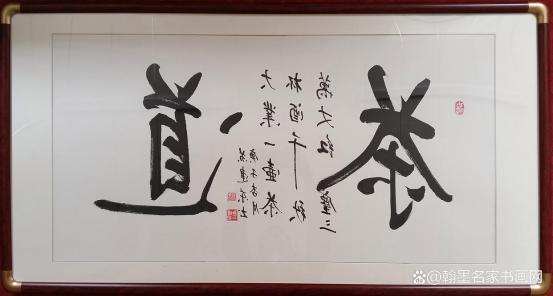 茶道
萬丈红塵三
杯酒千秋
大業一壶茶
@翰墨名家书画网